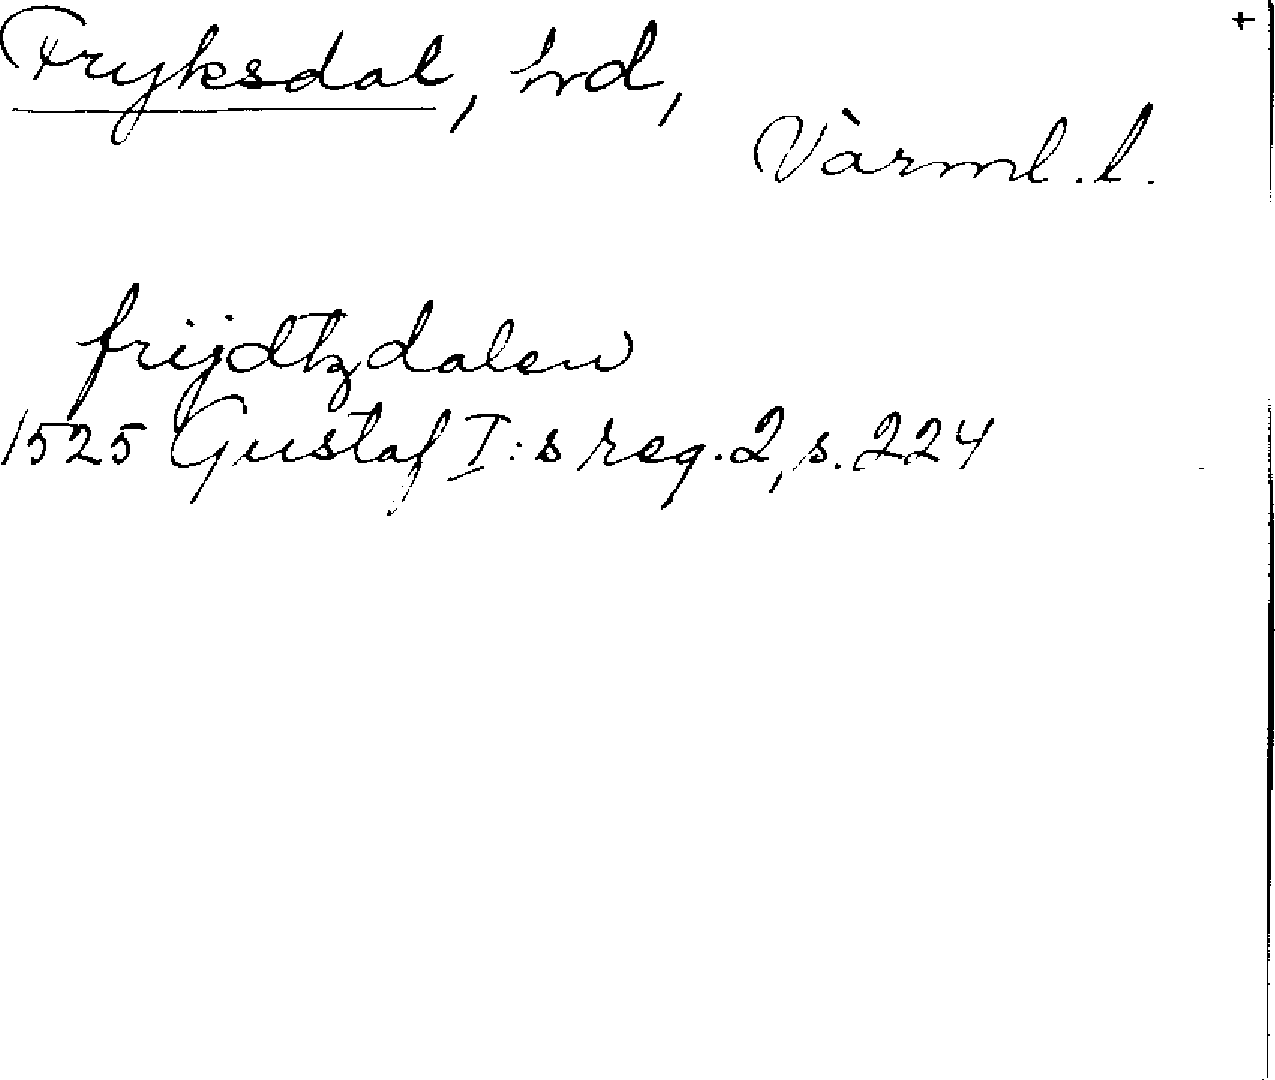 Fryksdal, hrd,
Värml. l.
frijdtzdalen
1525 Gustaf I:s reg. 2, s. 224